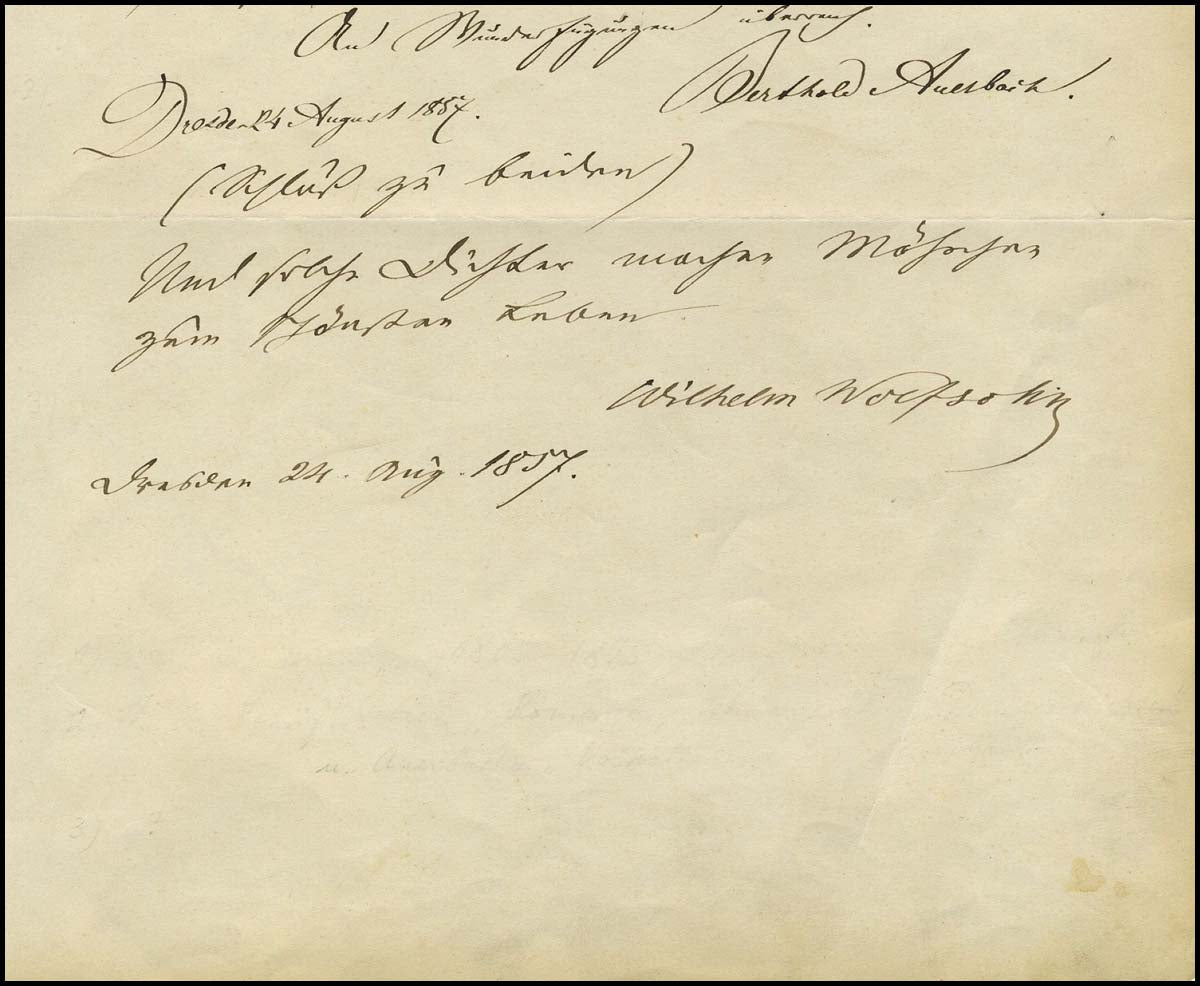 An Wunderfügungen überreich.
Berthold Auerbach.
Dresden 24 August 1857.
(Schluß zu beiden)
Und solche Dichter machen Mährchen
zum schönsten Leben.
Wilhelm Wolfsohn
Dresden 24. Aug. 1857.